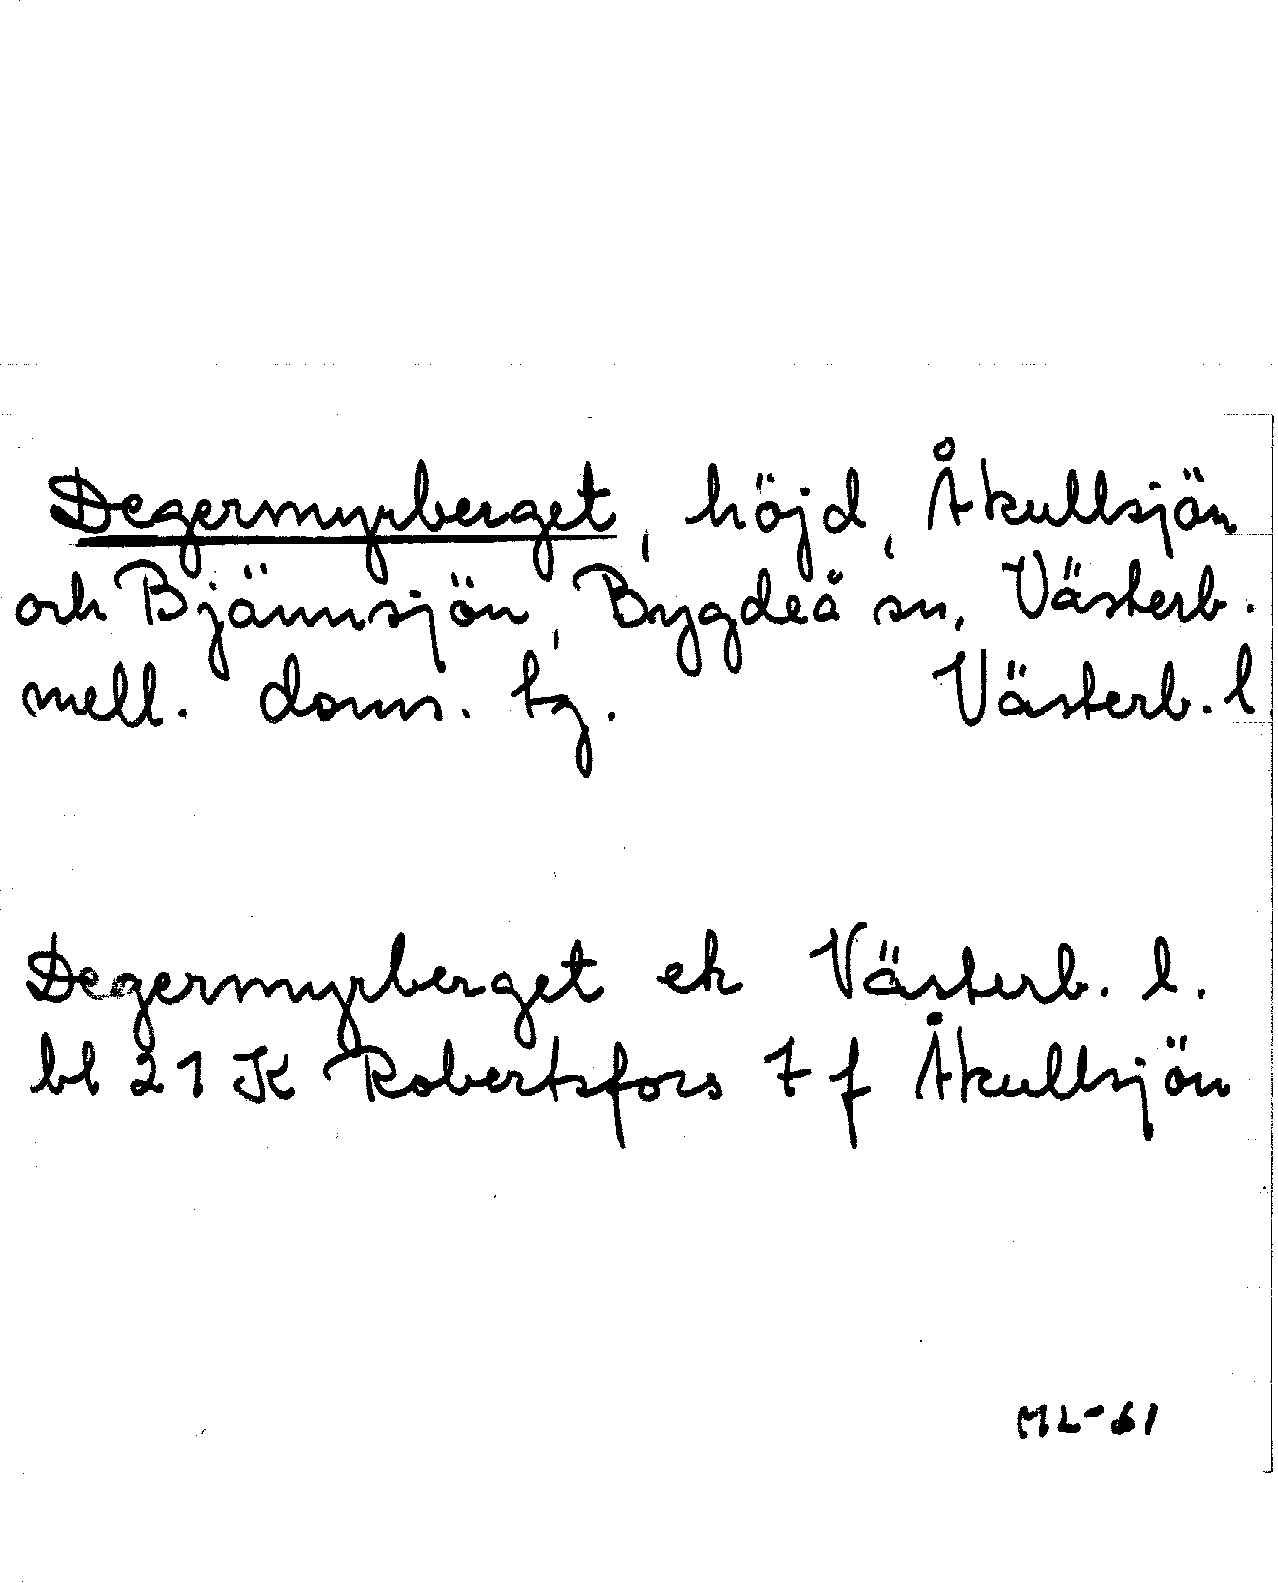 Degermyrberget, höjd, Åkullsjön
och Bjännsjön, Bygdeå sn, Västerb.
mell. doms. tg. Västerb. l
Degermyrberget ek Västerb. l.
bl 21 K Robertsfors 7 f Åkullsjön
ML-61